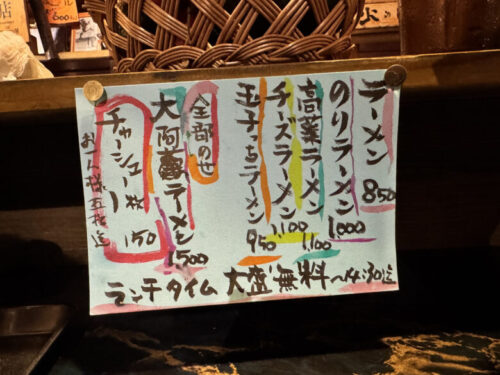 ラーメン 850
のりラーメン 1000
高菜ラーメン 1,100
チーズラーメン 1,100
玉子っちラーメン 950
全部のせ
大阿蘇ラーメン 1500
チャーシュー1枚 150
お一人様五枚迄
ランチタイム 大盛無料〜14:30迄